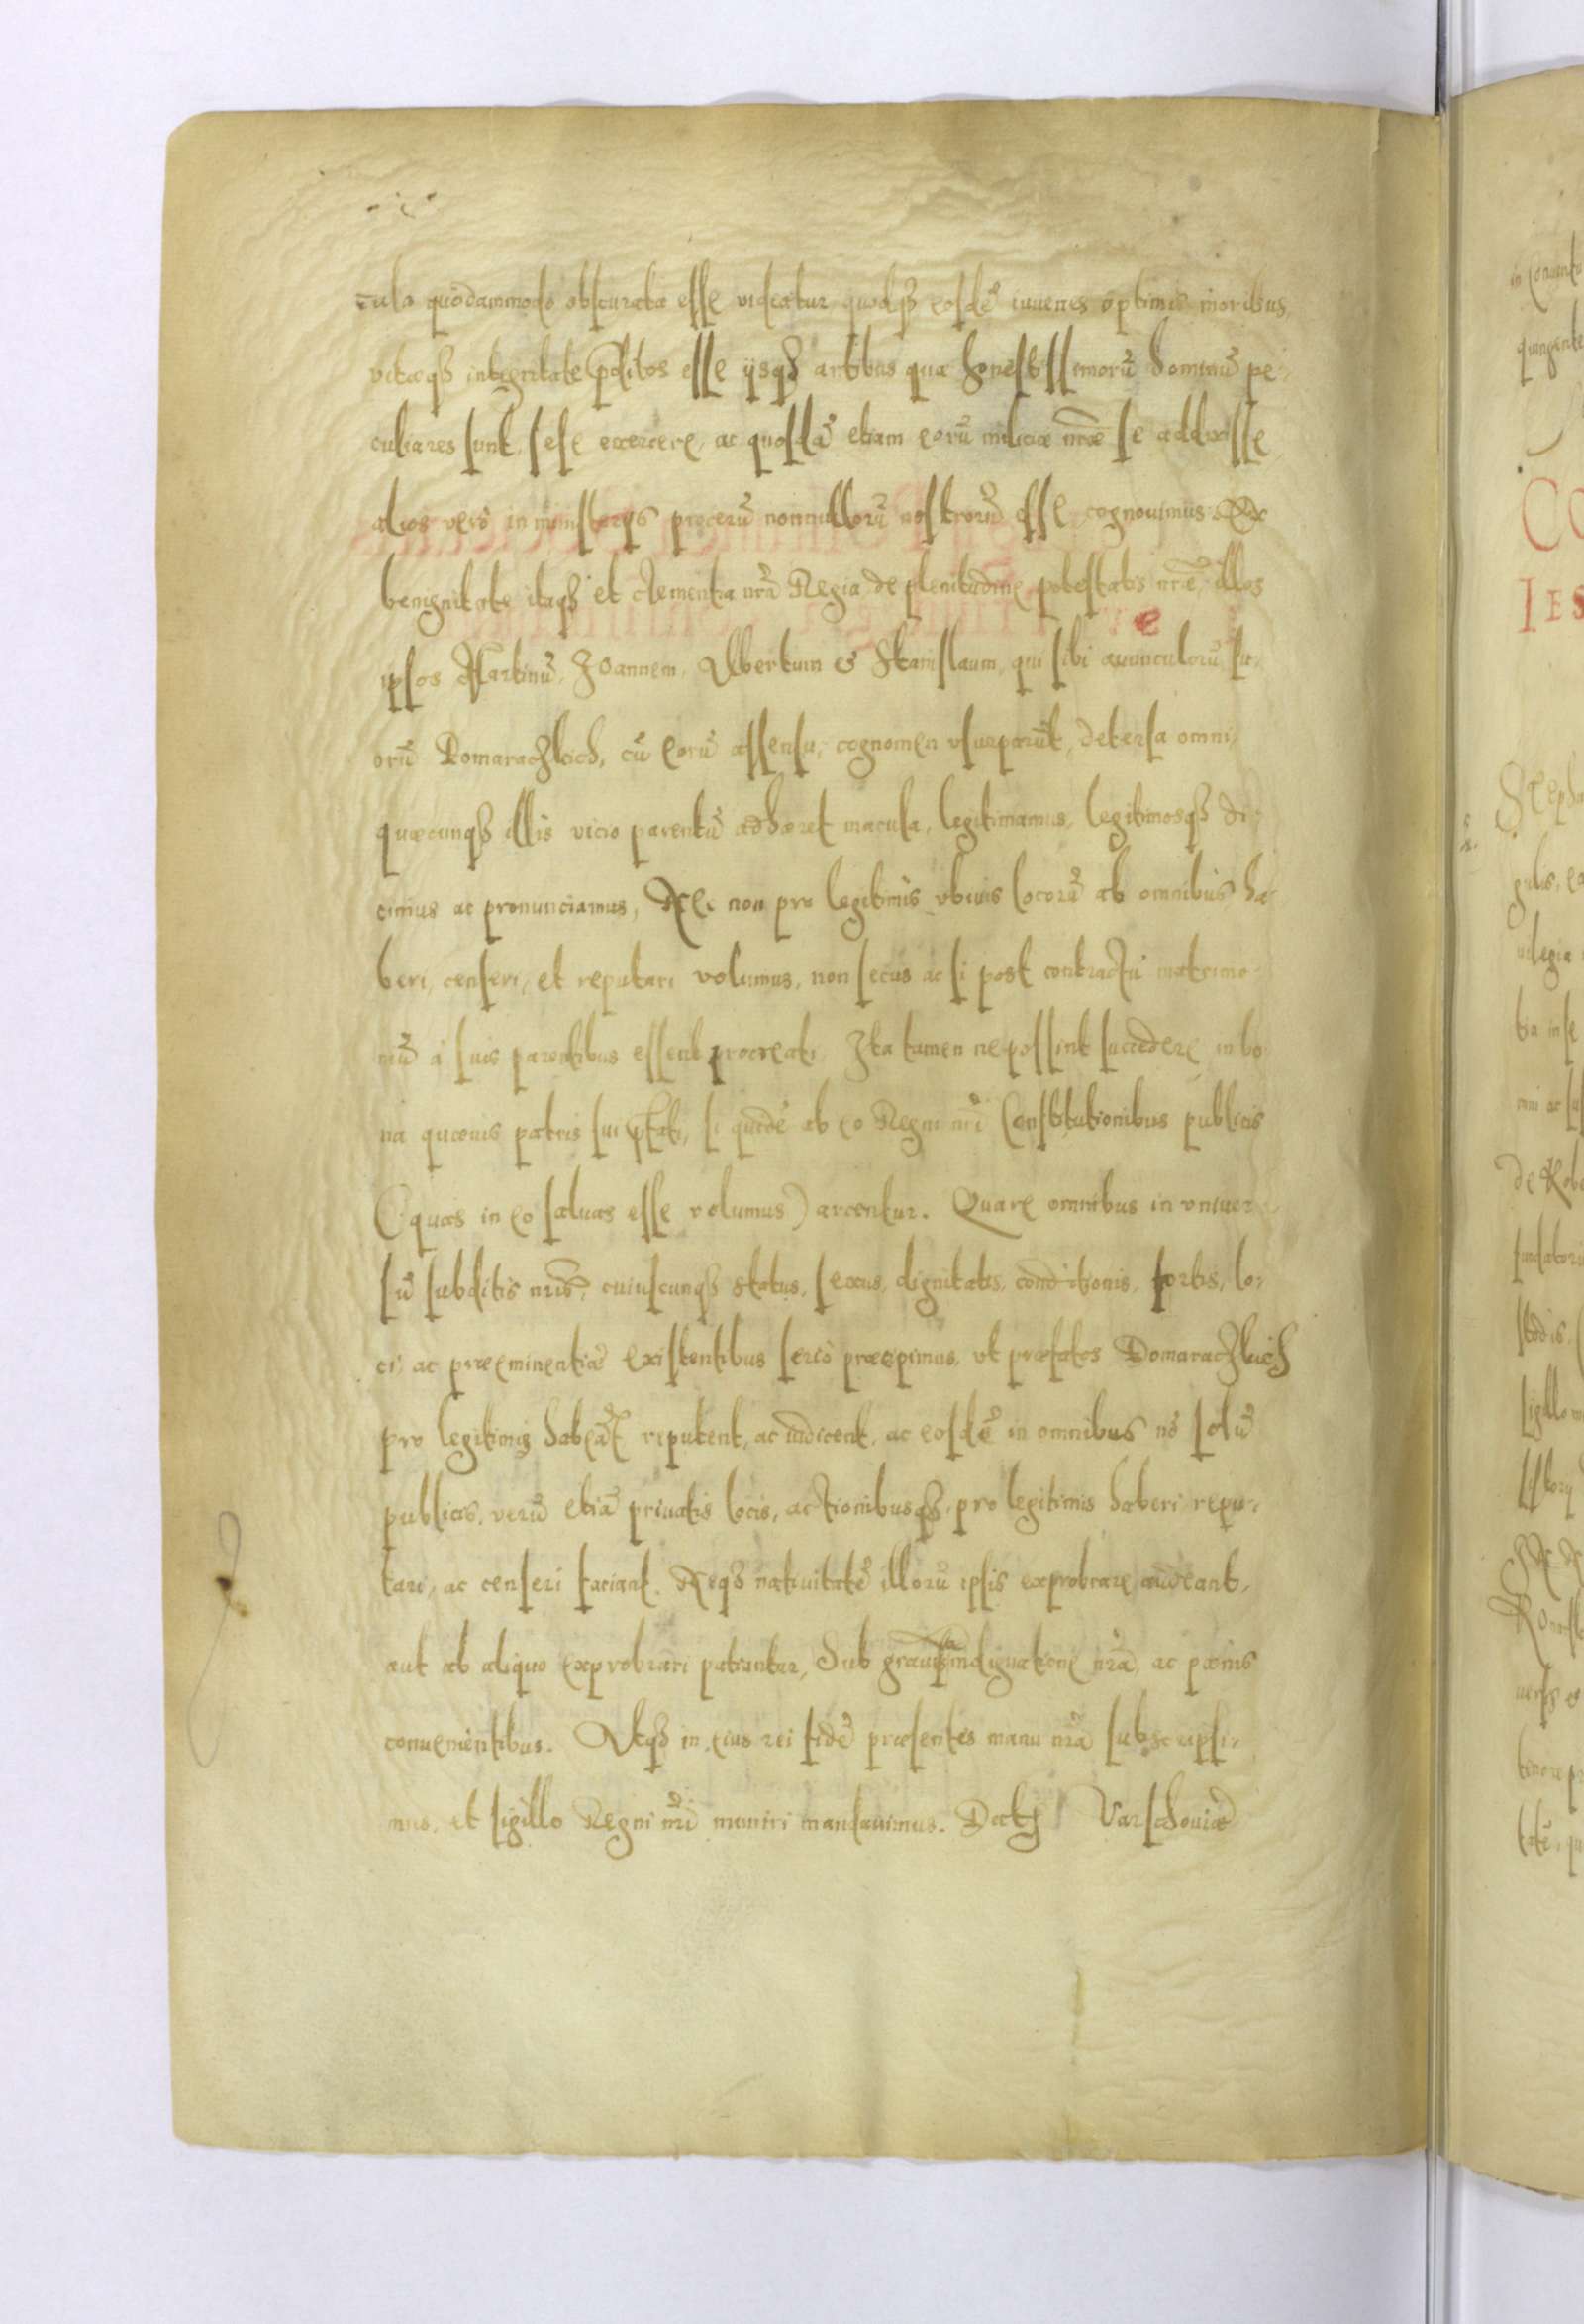 cula quodammodo obscurata esse videatur quodq́ȝ eosdẽ iuuenes optimis moribus,
vitæqȝ integritate p̱ditos esse ijsqȝ artibus quæ honestissimorũ hominũ pe-
culiares sunt, sese exercere, ac quosdã etiam eorũ miliciæ nr̃æ se addixisse
alios verò in ministerijs procerũ nonnullorũ nostrorũ esse cognouimus. Ex
benignitate itaqȝ et clementia nr̃a Regia de plenitudine potestatis nr̃æ, illos
ipsos Martinũ, Joannem, Albertum et Stanislaum, qui sibi auunculorũ su-
orũ Domaraczkich, cũ eorũ assensu, cognomen vsuparũt, detersa omni,
quæcunqȝ illis vicio parentũ adhæret macula, legitimamus, legitimosqȝ di-
cimus ac pronunciamus, Nec non pro legitimis vbiuis locorũ ab omnibus ha-
beri, censeri, et reputari volumus, non secus ac si post contractũ matrimo-
niũ à suis parentibus essent procreati. Ita tamen ne possint succedere in bo-
na quæuis patris sui p̱fati, si quidẽ ab eo Regni nr̃i Constitutionibus publicis
(quas in eo saluas esse volumus) arcentur. Quare omnibus in vniuer-
sũ subditis nr̃is, cuiuscunqȝ status, sexus, dignitatis, conditionis, sortis, lo-
ci, ac præeminentiæ existentibus seriò præcipimus, vt præfatos Domaraczkich
pro legitimis habeãt reputent, ac iudicent, ac eosdẽ in omnibus nõ solũ
publicis, verũ etiã priuatis locis, actionibusqȝ, pro legitimis haberi repu-
tari, ac censeri faciant. Neqȝ natiuitatẽ illorũ ipsis exprobrare audeant,
aut ab aliquo exprobrari patiantur, Sub grauiss̃a indignatione nr̃a, ac pœnis
conuenientibus. Atqȝ in eius rei fidẽ præsentes manu nr̃a subscripsi-
mus, et sigillo Regni nr̃i muniri mandauimus. Datȝ Varschouiæ